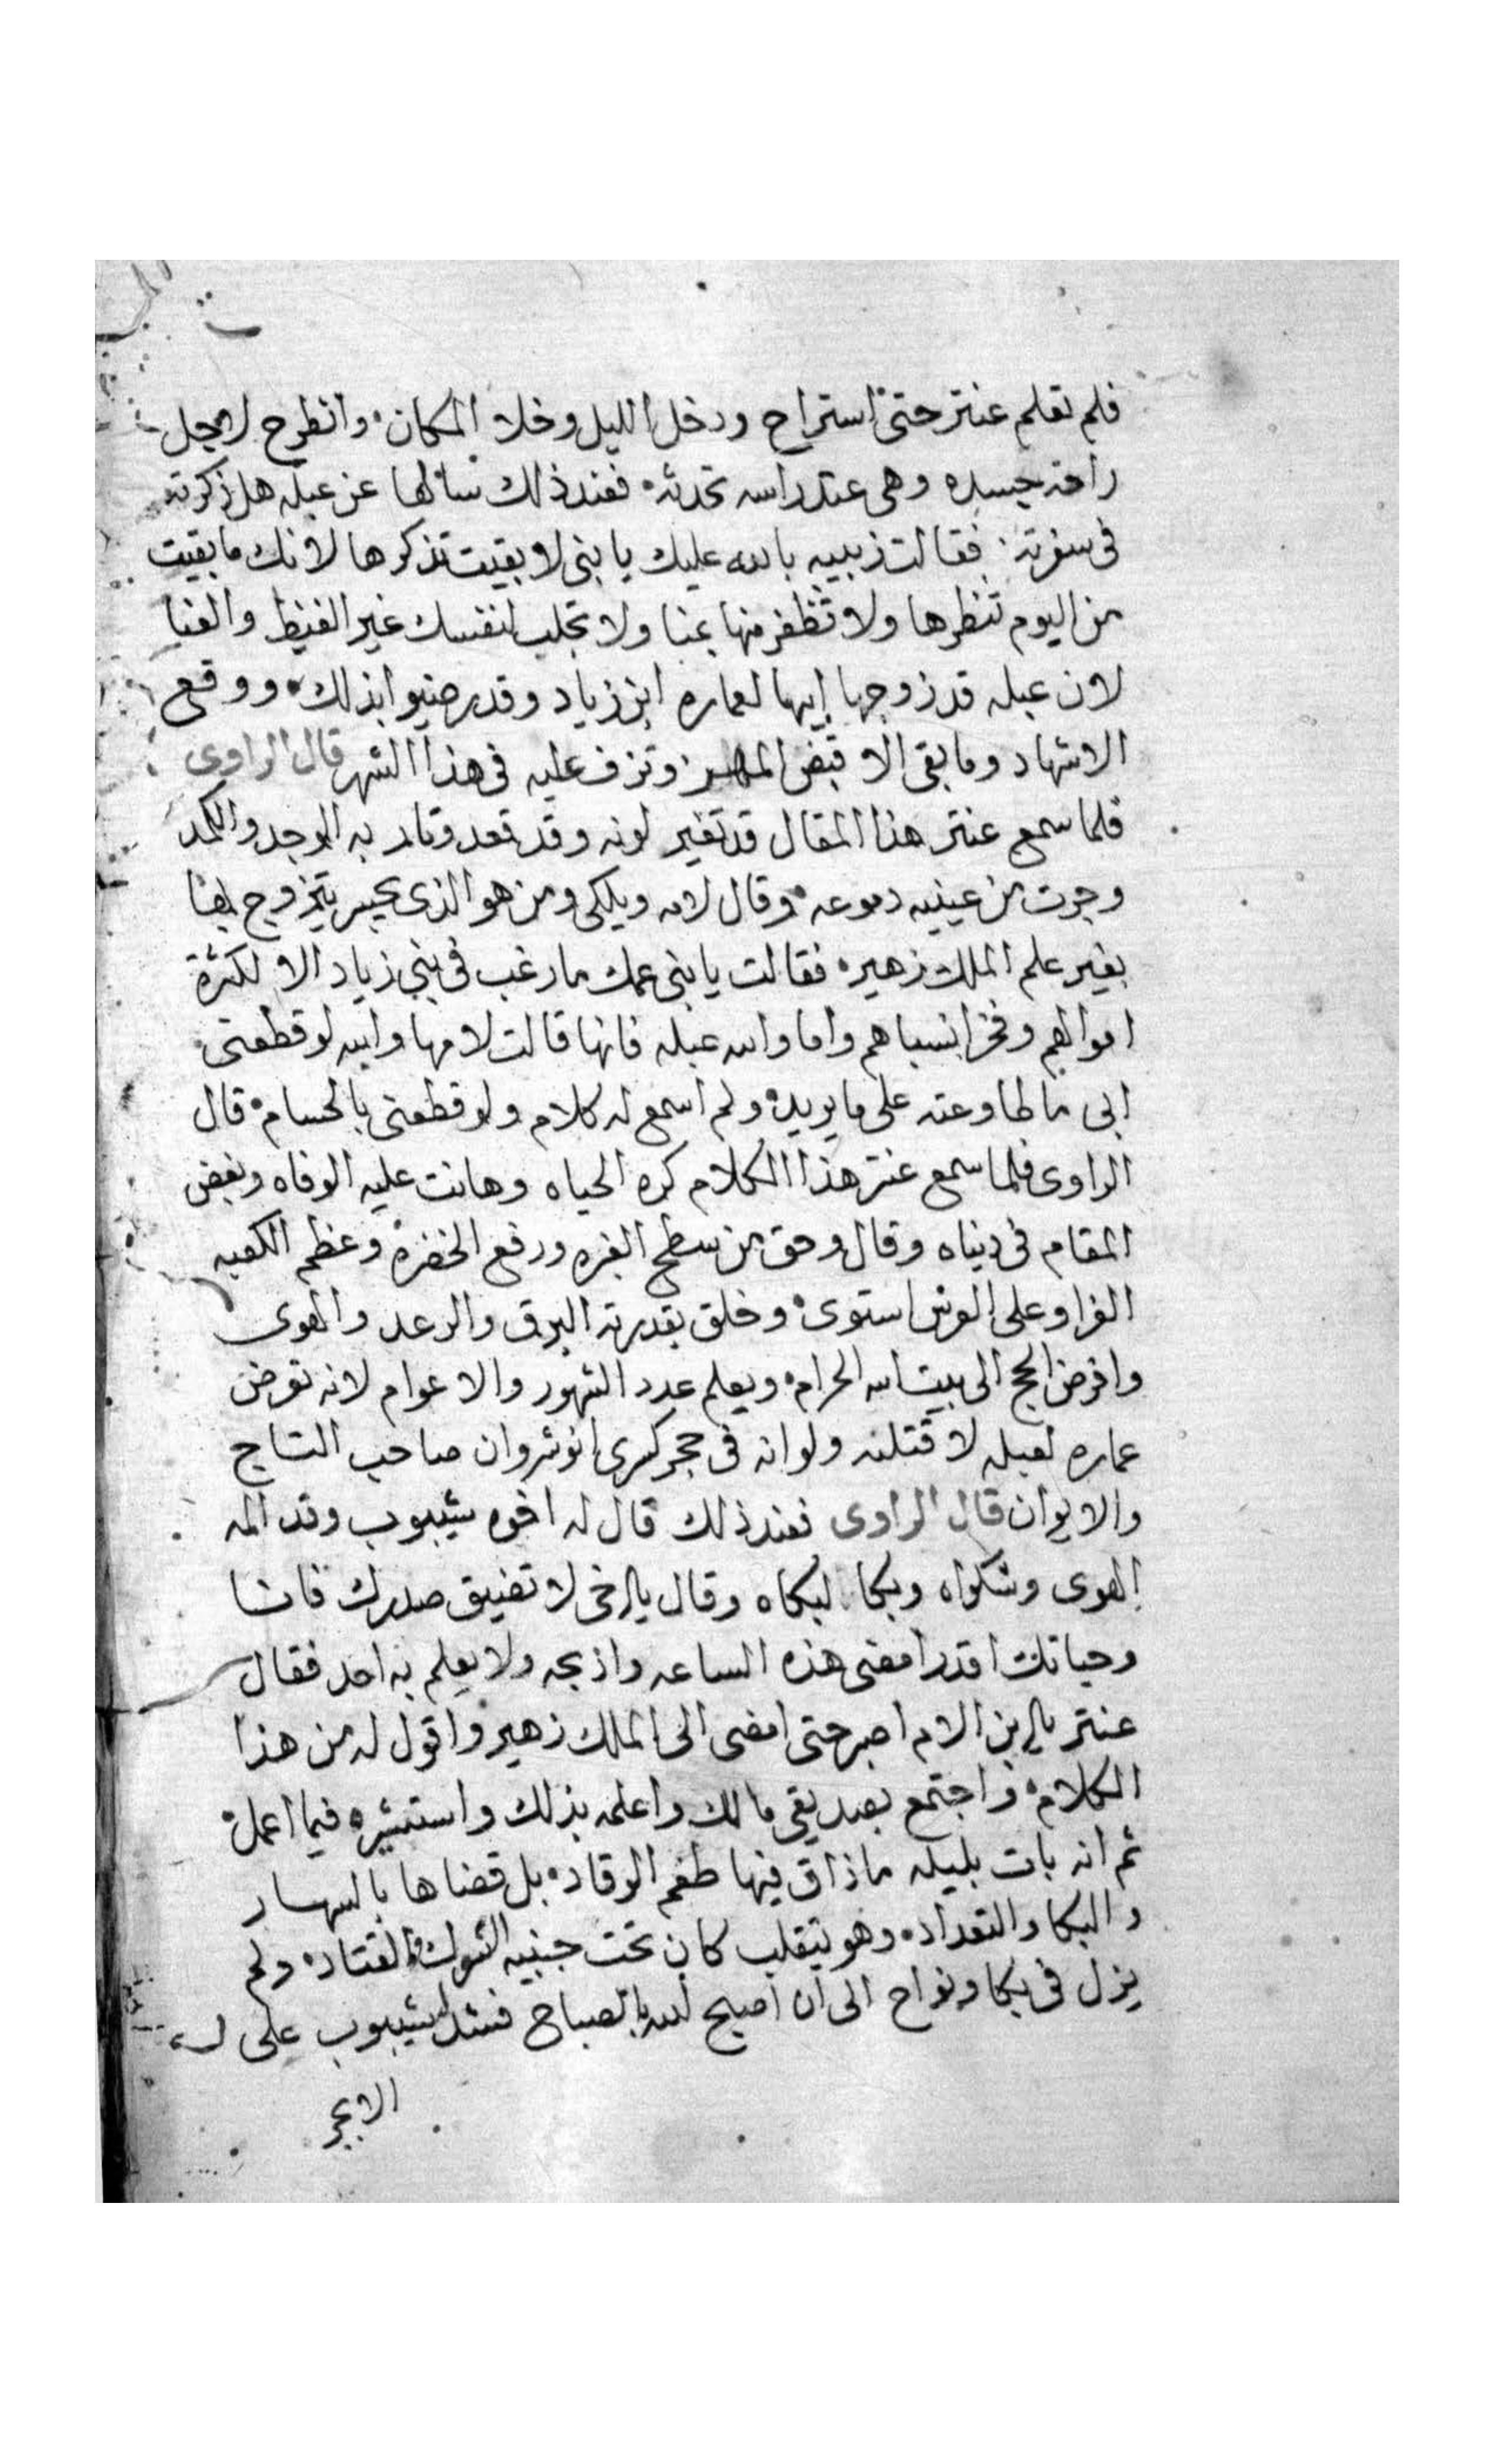 فلم تعلم عنتر حتى استراح ودخل الليل وخلا المكان وانطرح لاجل
راحة جسده وهى عند راسه تحدثه فعند ذلك سالها عن عبله هل ذكرته
فى سفرته فقالت زبيبه بالله عليك يا بنى لا بقيت تذكرها لانك ما بقيت
من اليوم تنظرها ولا تظفر منها بمنا ولا تجلب لنفسك غير الغيظ والعنا
لان عبله قد زوجها ابيها لعماره ابن زياد وقد رضيوا بذلك ووقع
الاشهاد وما بقى الا قبض المهر وتزف عليه فى هذا الشهر قال الراوى
فلما سمع عنتر هذا المقال قد تغير لونه وقد قعد وثار به الوجد والكمد
وجرت من عينيه دموعه وقال لامه ويلكى ومن هو الذى يجسر يتزوج بها
بغير علم الملك زهير فقالت يا بنى عمك ما رغب فى بنى زياد الا لكثرة
اموالهم وفخر انسباهم واما والله عبله فانها قالت لامها والله لو قطعتى
ابى ما طاوعته على ما يريد ولم اسمع له كلام ولو قطعنى بالحسام قال
الراوى فلما سمع عنتر هذا الكلام كره الحياه وهانت عليه الوفاه وبغض
المقام فى دنياه وقال وحق من سطح الغبره ورفع الخضره وعظم الكعبه
الغرا وعلى العرش استوى وخلق بقدرته البرق والرعد والهوى
وافرض الحج الى بيت الله الحرام ويعلم عدد الشهور والاعوام لانه تعرض
عماره لعبله لاقتلنه ولو انه فى حجر كسرى انوشروان صاحب التاج
والايوان قال الراوى فعند ذلك قال له اخوه شيبوب وقد المه
الهوى وشكواه وبكا لبكاه وقال يا اخى لا تضيق صدرك فانا
وحياتك اقدر امضى هذه الساعه واذبحه ولا يعلم به احد فقال
عنتر يا ابن الام اصبر حتى امضى الى الملك زهير واقول له من هذا
الكلام واجتمع بصديقى مالك واعلمه بذلك واستشيره فيما اعمل
ثم انه بات بليله ما ذاق فيها طعم الرقاد بل قضاها بالسهار
والبكا والتعداد وهو يتقلب كان تحت جنبيه الشوك والقتاد ولم
يزل فى بكا ونواح الى ان اصبح الله بالصباح فشد له شيبوب على
الابجر